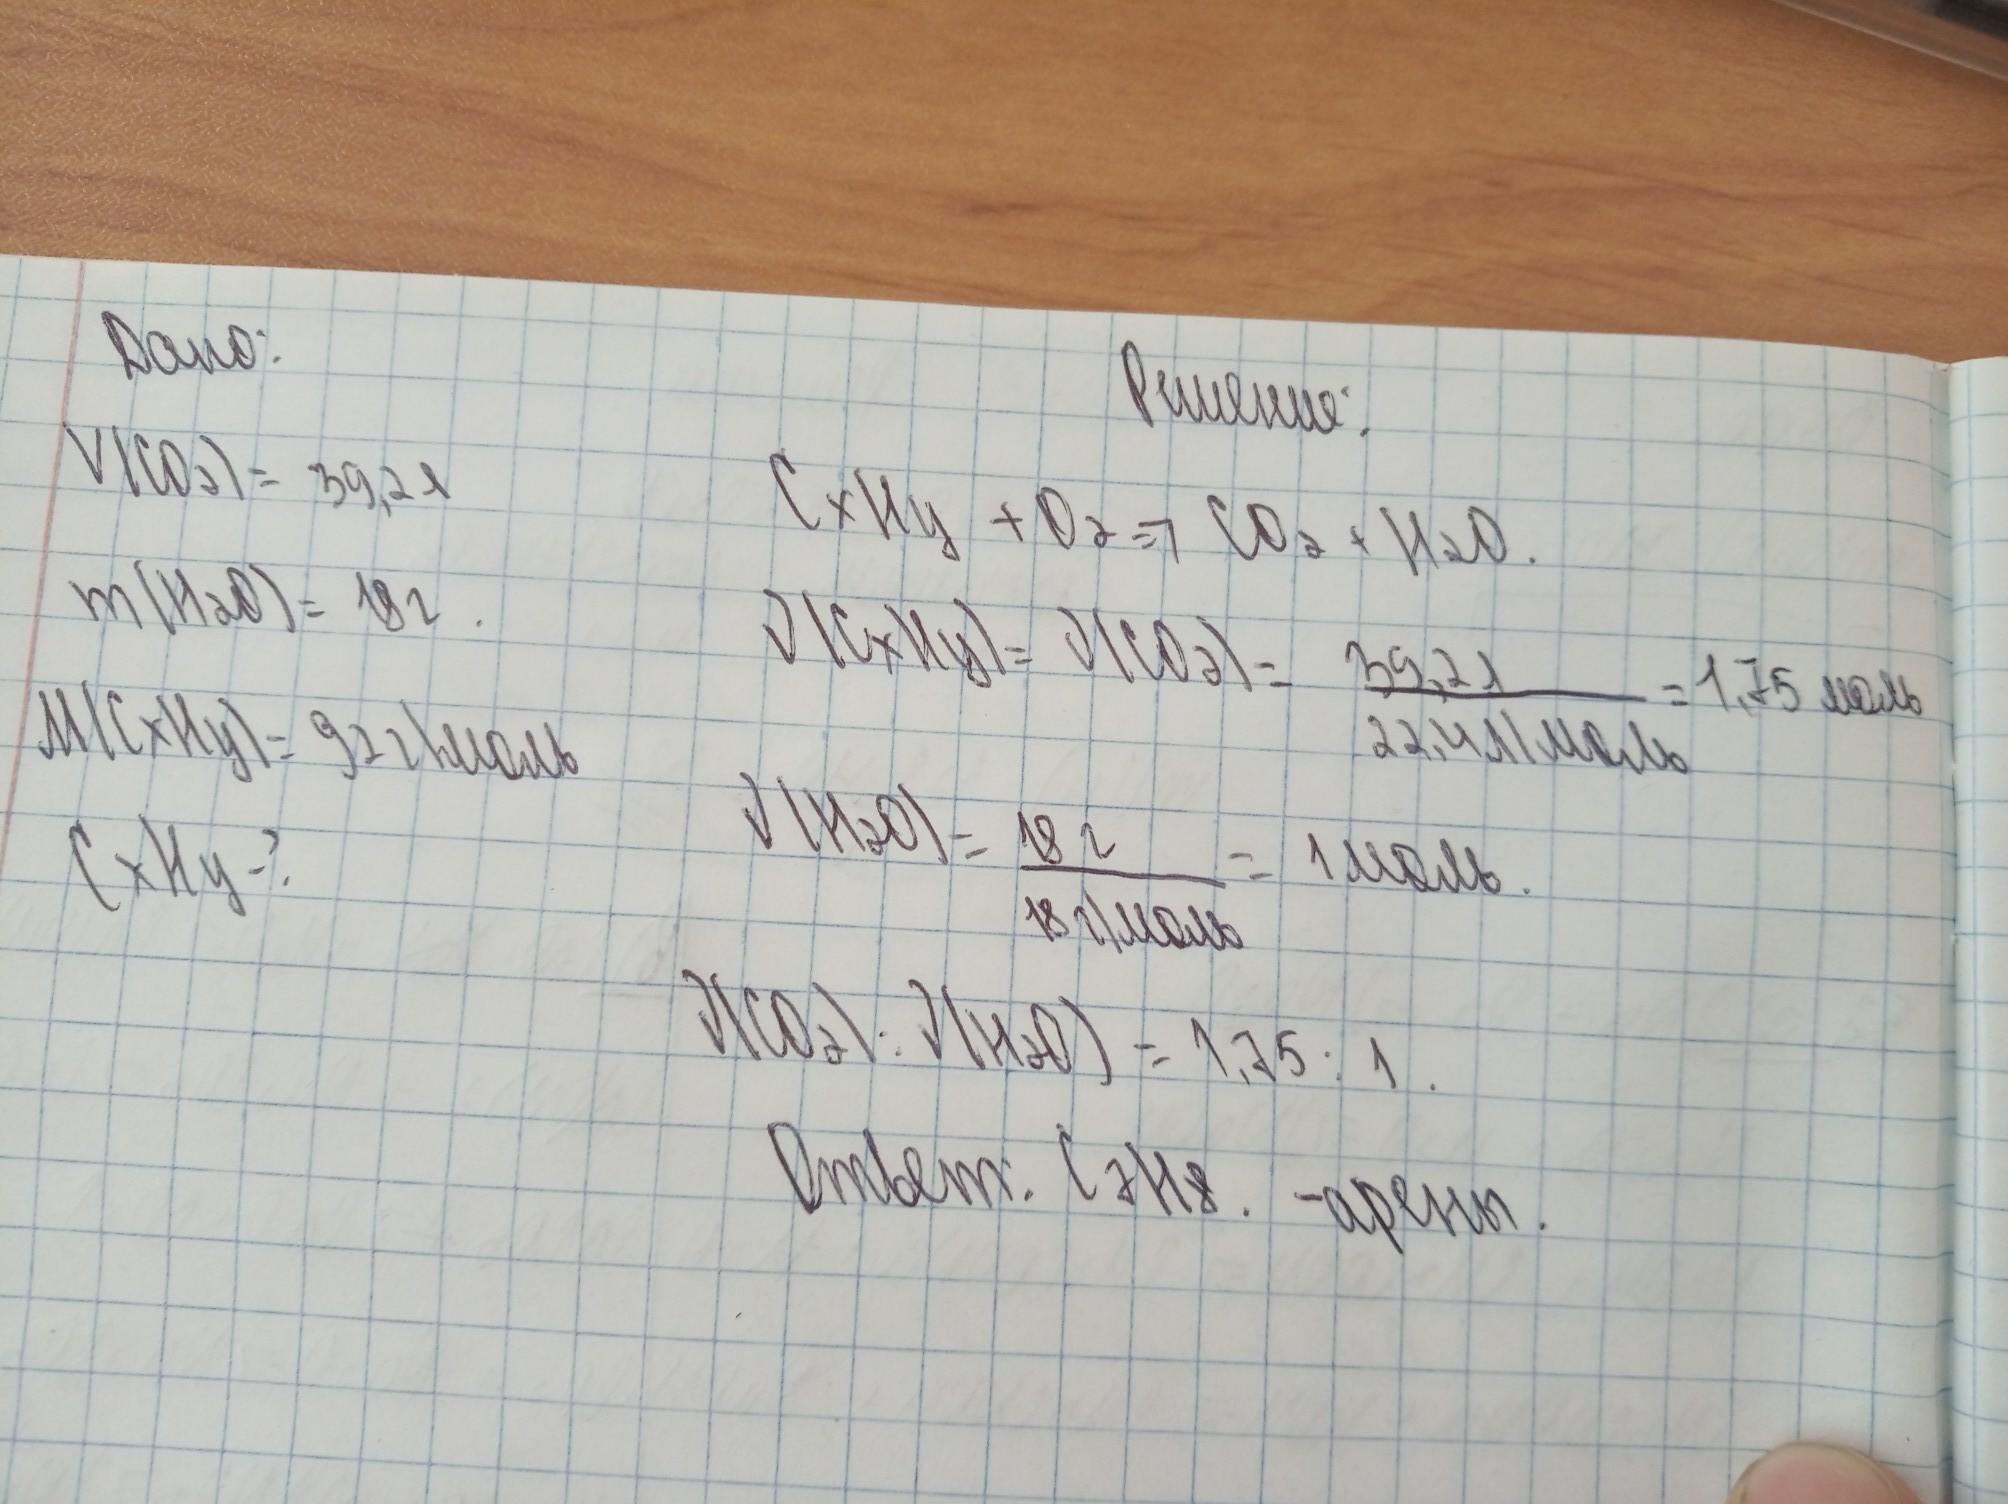 Дано:
V(CO2) = 39,2 л
m(H2O) = 18 г.
M(CxHy) = 92 г/моль
CxHy-?
Решение:
CxHy + O2 => CO2 + H2O.
ν(CxHy) = ν(CO2) = 39,2 л / 22,4 л/моль = 1,75 моль
ν(H2O) = 18 г / 18 г/моль = 1 моль.
ν(CO2) : ν(H2O) = 1,75 : 1.
Ответ: C7H8. - арены.